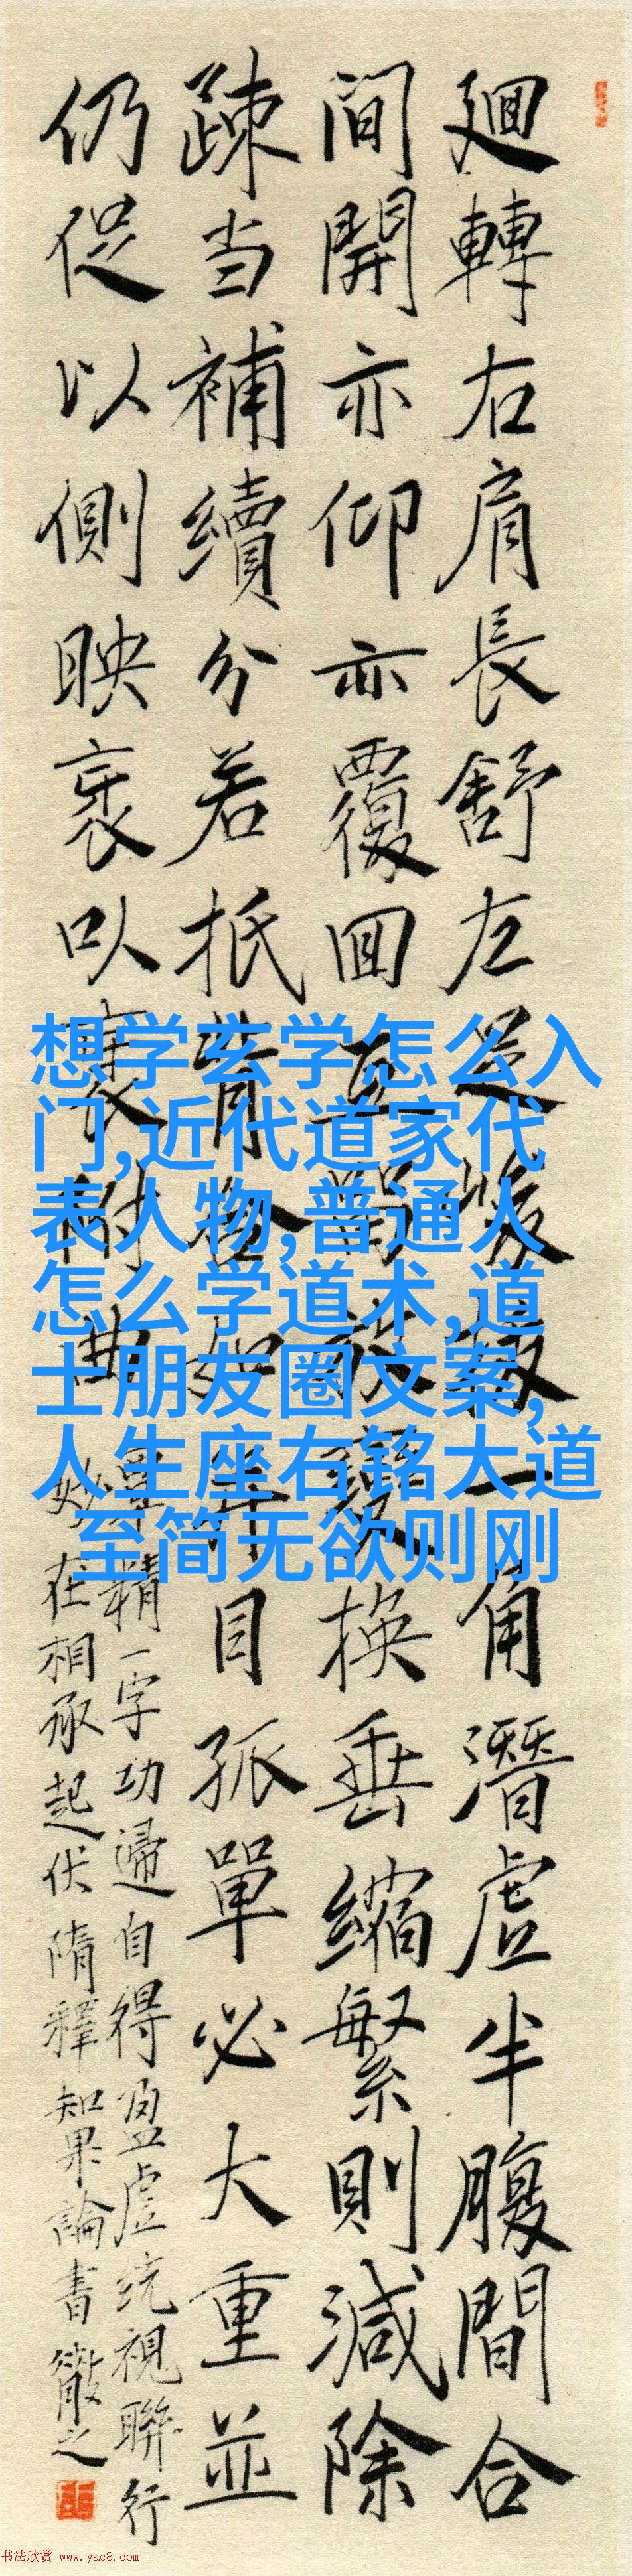 迴轉右肩長舒左足峻拔一角潛虛半腹間合
間開亦仰亦覆回互留放變換垂縮繁則減除
疎当補續分若抵背合如並目孤單必大重並
仍促以側映衺以衺附曲
覃精一字功歸自得盈虛統視聯行
妙在相承起伏隋釋智果論書徹之
想学玄学怎么入
门,近代道家代
表人物,普通人
怎么学道术,道
士朋友圈文案,
人生座右铭大道
至简无欲则刚
书法欣赏 www.yac8.com